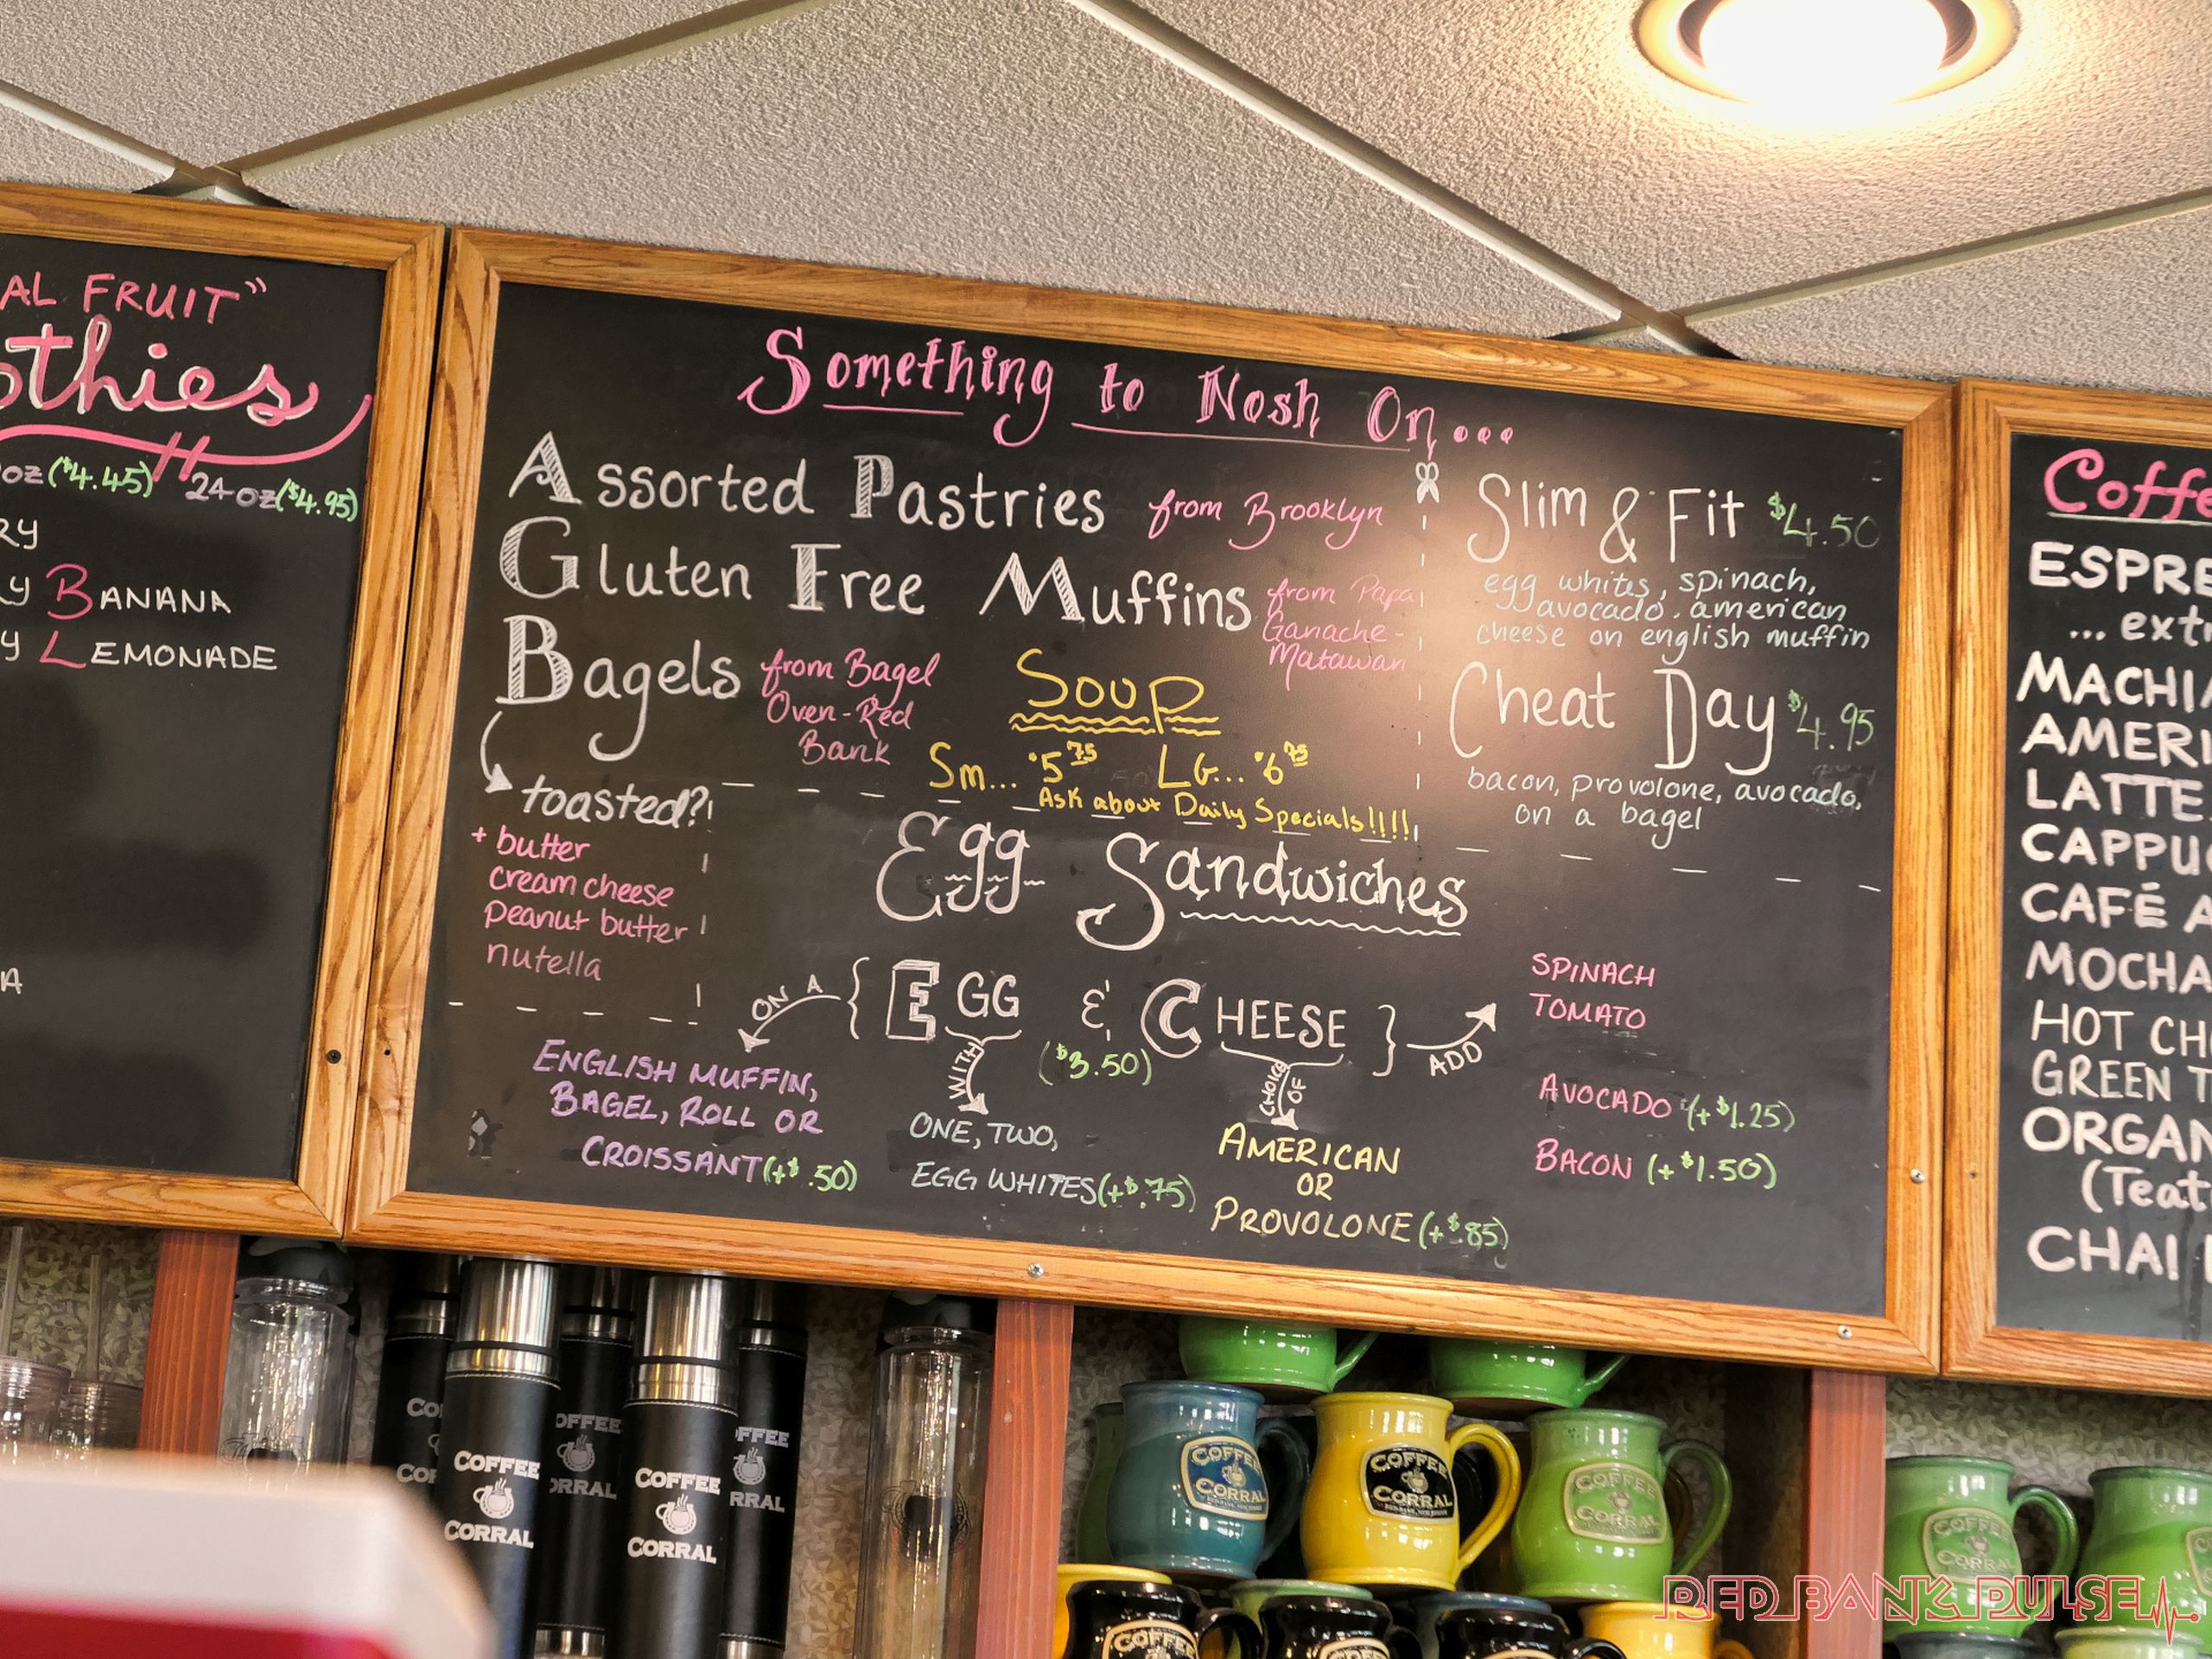 AL FRUIT"
othies
oz ($4.45) 24oz ($4.95)
RY
RY BANANA
Y LEMONADE
A
Something to Nosh On...
Assorted Pastries from Brooklyn
Gluten Free Muffins from Papa
Ganache-
Matawan
Bagels from Bagel
Oven-Red
Bank
toasted?
+ butter
cream cheese
peanut butter
nutella
Soup
Sm... $5.75 LG... $6.75
Ask about Daily Specials!!!!
Slim & Fit $4.50
egg whites, spinach,
avocado, american
cheese on english muffin
Cheat Day $4.95
bacon, provolone, avocado,
on a bagel
Egg Sandwiches
ON A { EGG & CHEESE } ADD
($3.50)
WITH
CHOICE OF
ENGLISH MUFFIN,
BAGEL, ROLL OR
CROISSANT (+$.50)
ONE, TWO,
EGG WHITES (+$.75)
AMERICAN
OR
PROVOLONE (+$.85)
SPINACH
TOMATO
AVOCADO (+$1.25)
BACON (+$1.50)
Coffe
ESPRE
... ext
MACHI
AMERI
LATTE
CAPPU
CAFÉ A
MOCHA
HOT CH
GREEN T
ORGAN
(Teat
CHAI
COFFEE
CORRAL
COFFEE
CORRAL
COFFEE
ORRAL
FFEE
RRAL
CO
CO
COFFEE
CORRAL
COFFEE
CORRAL
COFFEE
CORRAL
COFFEE
CORRAL
COFFEE
COFFEE
RED BANK PULSE